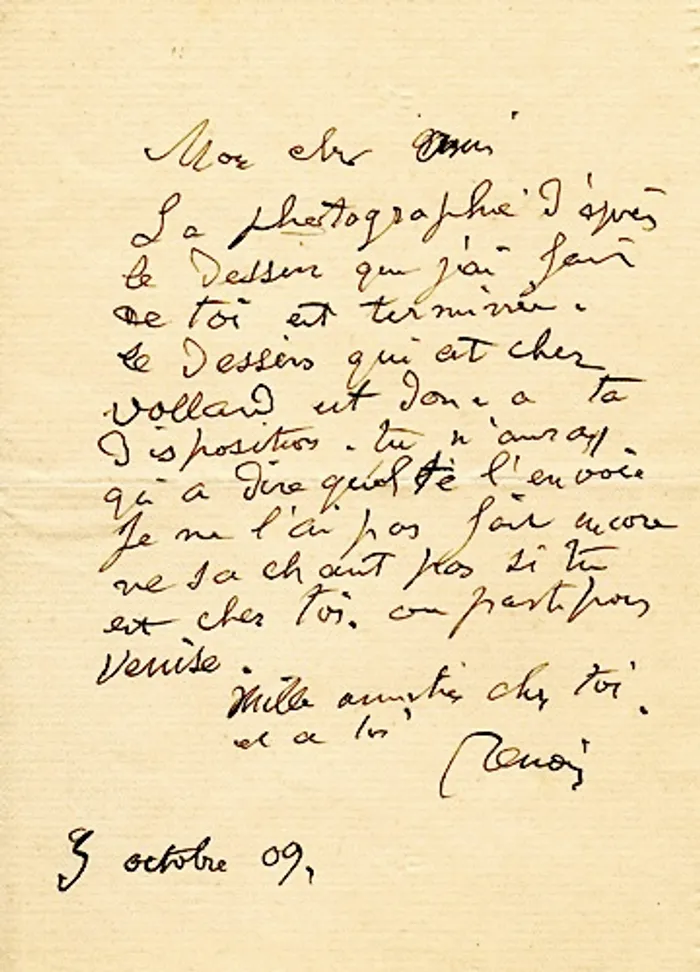 Mon cher ami
La photographie d'après
le dessin que j'ai fait
de toi est terminée.
le dessin qui est chez
vollard est donc a ta
disposition. tu n'auras
qu'a dire qu'il te l'envoie
Je ne l'ai pas fait encore
ne sachant pas si tu
est chez toi. ou parti pour
Venise.
Mille amitiés chez toi.
et a toi
Renoir
3 octobre 09.